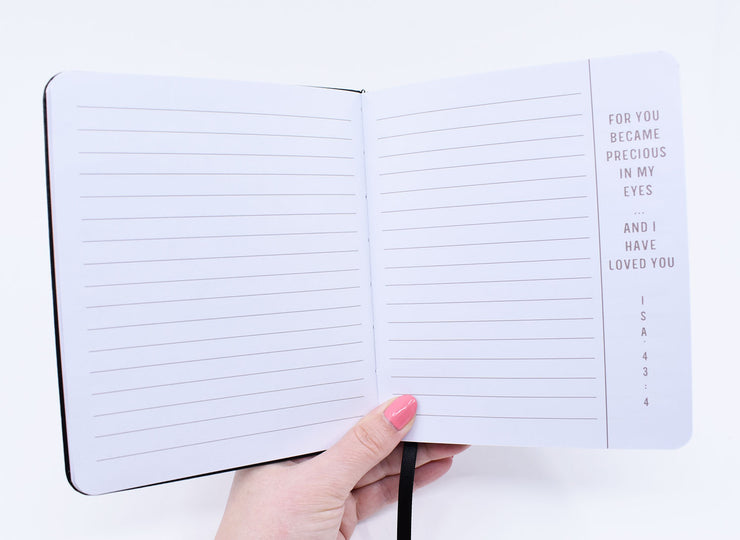 FOR YOU
BECAME
PRECIOUS
IN MY
EYES
...
AND I
HAVE
LOVED YOU
I
S
A
.
4
3
:
4